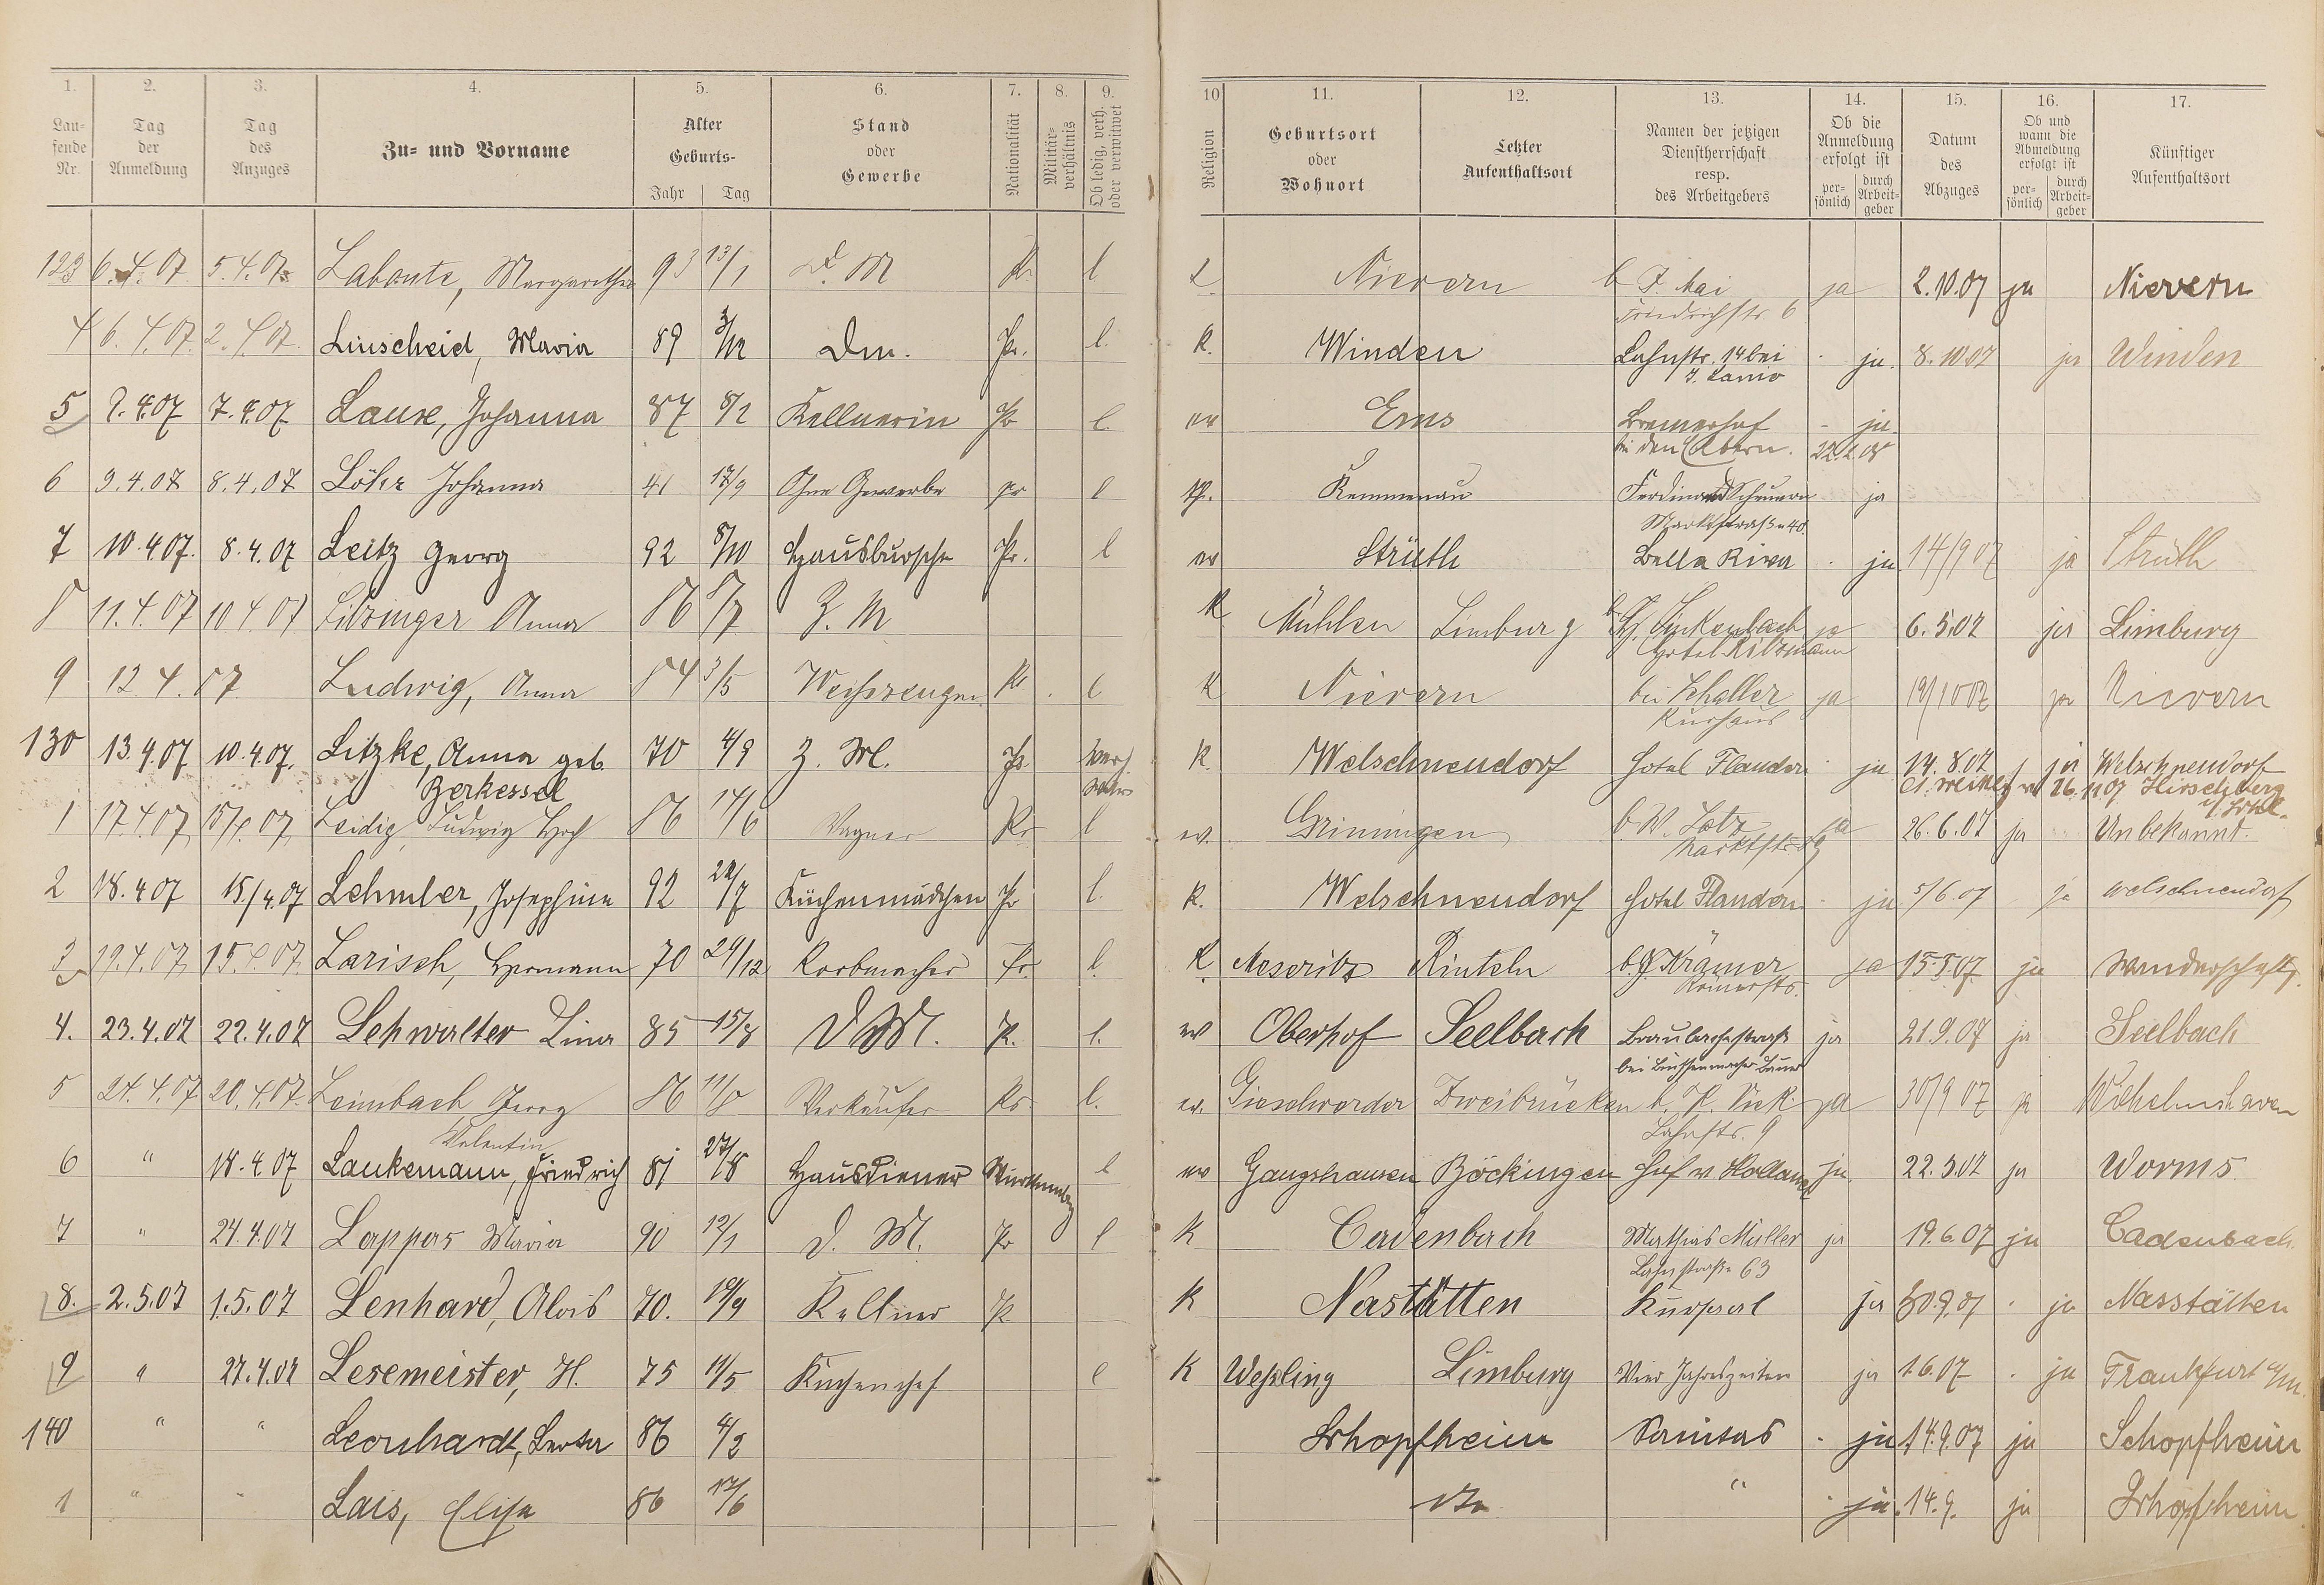 1. 2. 3. 4. 5. 6. 7. 8. 9. 10 11. 12. 13. 14. 15. 16. 17.
Laufende Nr. Tag der Anmeldung Tag des Anzuges Zu- und Vorname Alter Geburts- Jahr Tag Stand oder Gewerbe Nationalität Militärverhältnis Ob ledig, verh. oder verwitwet Religion Geburtsort oder Wohnort Letzter Aufenthaltsort Namen der jetzigen Dienstherrschaft resp. des Arbeitgebers Ob die Anmeldung erfolgt ist persönlich durch Arbeitgeber Datum des Abzuges Ob und wann die Abmeldung erfolgt ist persönlich durch Arbeitgeber Künftiger Aufenthaltsort
123 6.4.07 5.4.07 Labonte, Margarethe 93 13/1 D. M Pr l Nievern b J. Mai ja 2.10.07 ja Nievern
Friedrichstr. 6
4 6.4.07. 2.4.07. Linscheid, Maria 89 3/12 Dm. Pr. l. K. Winden Lahnstr. 14 bei ja. 8.10.07 ja Winden
J. Lanio
5 8.4.07 7.4.07 Lause, Johanna 87 8/2 Kellnerin Pr l. ev Ems Bremerhof - ja.
bei den Obern. 22.2.08
6 9.4.07 8.4.07 Löhr Johanna 41 17/9 Ohne Gewerbe pr l Kemmenau Ferdinand Scheuern ja
Marktstraße 40.
7 10.4.07. 8.4.07 Leitz Georg 92 8/10 Hausbursche Pr. l ev Strüth Bella Riva ja 14/9 07 ja Strüth
8 11.4.07 10 4.07 Litzinger Anna 86 8/7 Z. M K Mühlen Limburg ja 6.5.07 ja Limburg
Hotel
9 12 4.07 Ludwig, Anna 84 3/5 Weißzeugen Pr. l K Nievern bei Schaller ja 19/10 07 ja Nievern
Kurhaus
130 13.4.07 10.4.07. Litzke, Anna geb. 70 4/9 Z. M. Pr. K. Welschneudorf Hotel Flandern ja 14.8.07 ja Welschneudorf
Berkessel 26.11 07 Hirschberg
1 17.4.07 15/4.07 Leidig, Ludwig 86 14/6 Wagner Pr l ev. Griningen b W. Lotz ja 26.6.07 ja Unbekannt.
Marktstr.
2 18.4.07 15/4.07 Lehmler, Josephine 92 22/7 Küchenmädchen Pr l. K. Welschneudorf Hotel Flandern - ja 5/6.07 ja Welschneudorf
3 19.4.07 15.4.07 Larisch, Hermann 70 24/12 Korbmacher Pr. l. K. Meseritz Rinteln b. G. Krämer ja 15.5.07. ja Wanderschaft.
Römerstr.
4. 23.4.07 22.4.07 Lehwalter Lina 85 15/8 D. M. Pr. l. ev Oberhof Seelbach Braubacherstraße ja 21.9.07 ja Seelbach
bei
5 24.4.07 20.4.07. Leimbach Georg 86 11/8 Verkäufer Pr. l. ev. Gieselwerder Zweibrücken ja 30/9 07 ja Wilhelmshaven
Valentin Lahnstr. 9
6 " 18.4.07 Laukemann, Friedrich 81 27/8 Hausdiener Württemberg l ev Gangshausen Böckingen Hof v Holland ja. 22.5.07 ja Worms
7 " 24.4.07 Lappas Maria 90 12/1 D. M. Pr l K Cadenbach Mathias Müller ja 19.6.07 ja Cadenbach
Lahnstraße 63
8. 2.5.07 1.5.07 Lenhard, Alois 70. 19/9 Kellner Pr K Nastätten Kursaal ja 30.9.07 · ja Nasstätten
9 " 27.4.07 Lesemeister, H. 75 11/5 Küchenchef l K Weßling Limburg Vier Jahreszeiten ja 1.6.07 · ja Frankfurt a/m.
140 " " Leonhardt, 86 4/2 Schopfheim Sanitas - ja 14.9.07 ja Schopfheim
1 " " Lais, Elisa 86 17/6 " ja. 14.9. ja Schopfheim